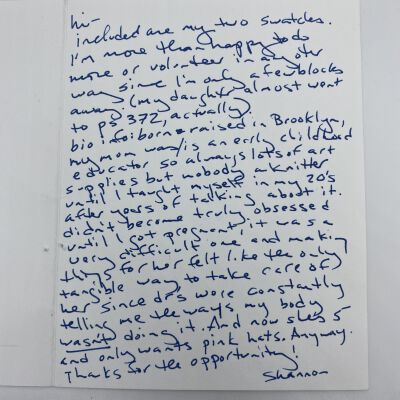 hi-
included are my two swatches.
I'm more than happy to do
more or volunteer in any other
way since I'm only a few blocks
away (my daughter almost went
to ps 372, actually).
bio info: born + raised in Brooklyn,
my mom was/is an erly childhood
educator so always lots of art
supplies but nobody a knitter
until I taught myself in my 20's
after years of talking about it.
didn't become truly obsessed
until I got pregnant. it was a
very difficult one and making
things for her felt like the only
tangible way to take care of
her since drs were constantly
telling me the ways my body
wasn't doing it. And now she's 5
and only wants pink hats. Anyway.
Thanks for the opportunity!
Shannon